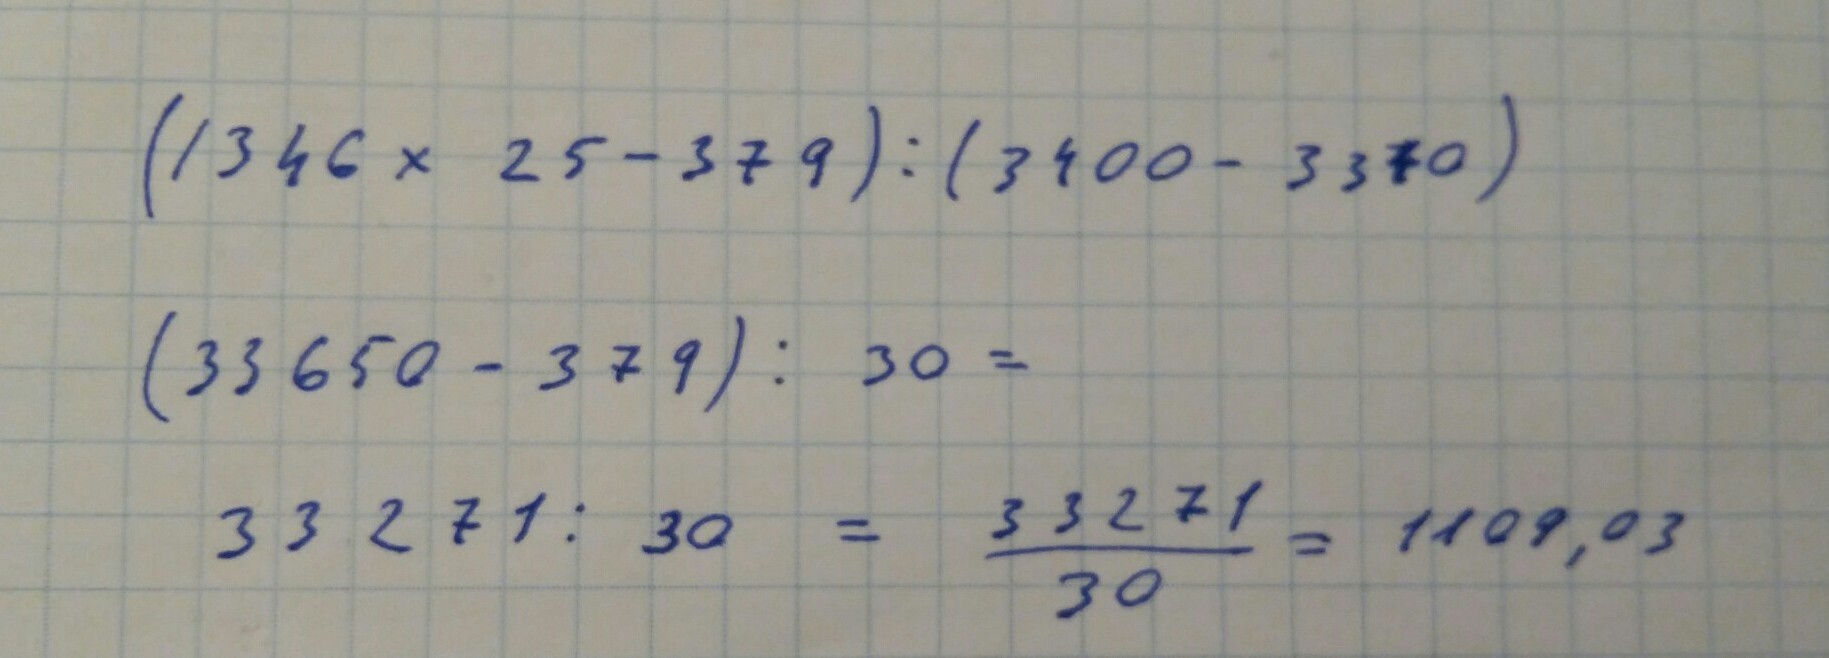 (1346 × 25 - 379) : (3400 - 3370)
(33650 - 379) : 30 =
33271 : 30 = 33271/30 = 1109,03